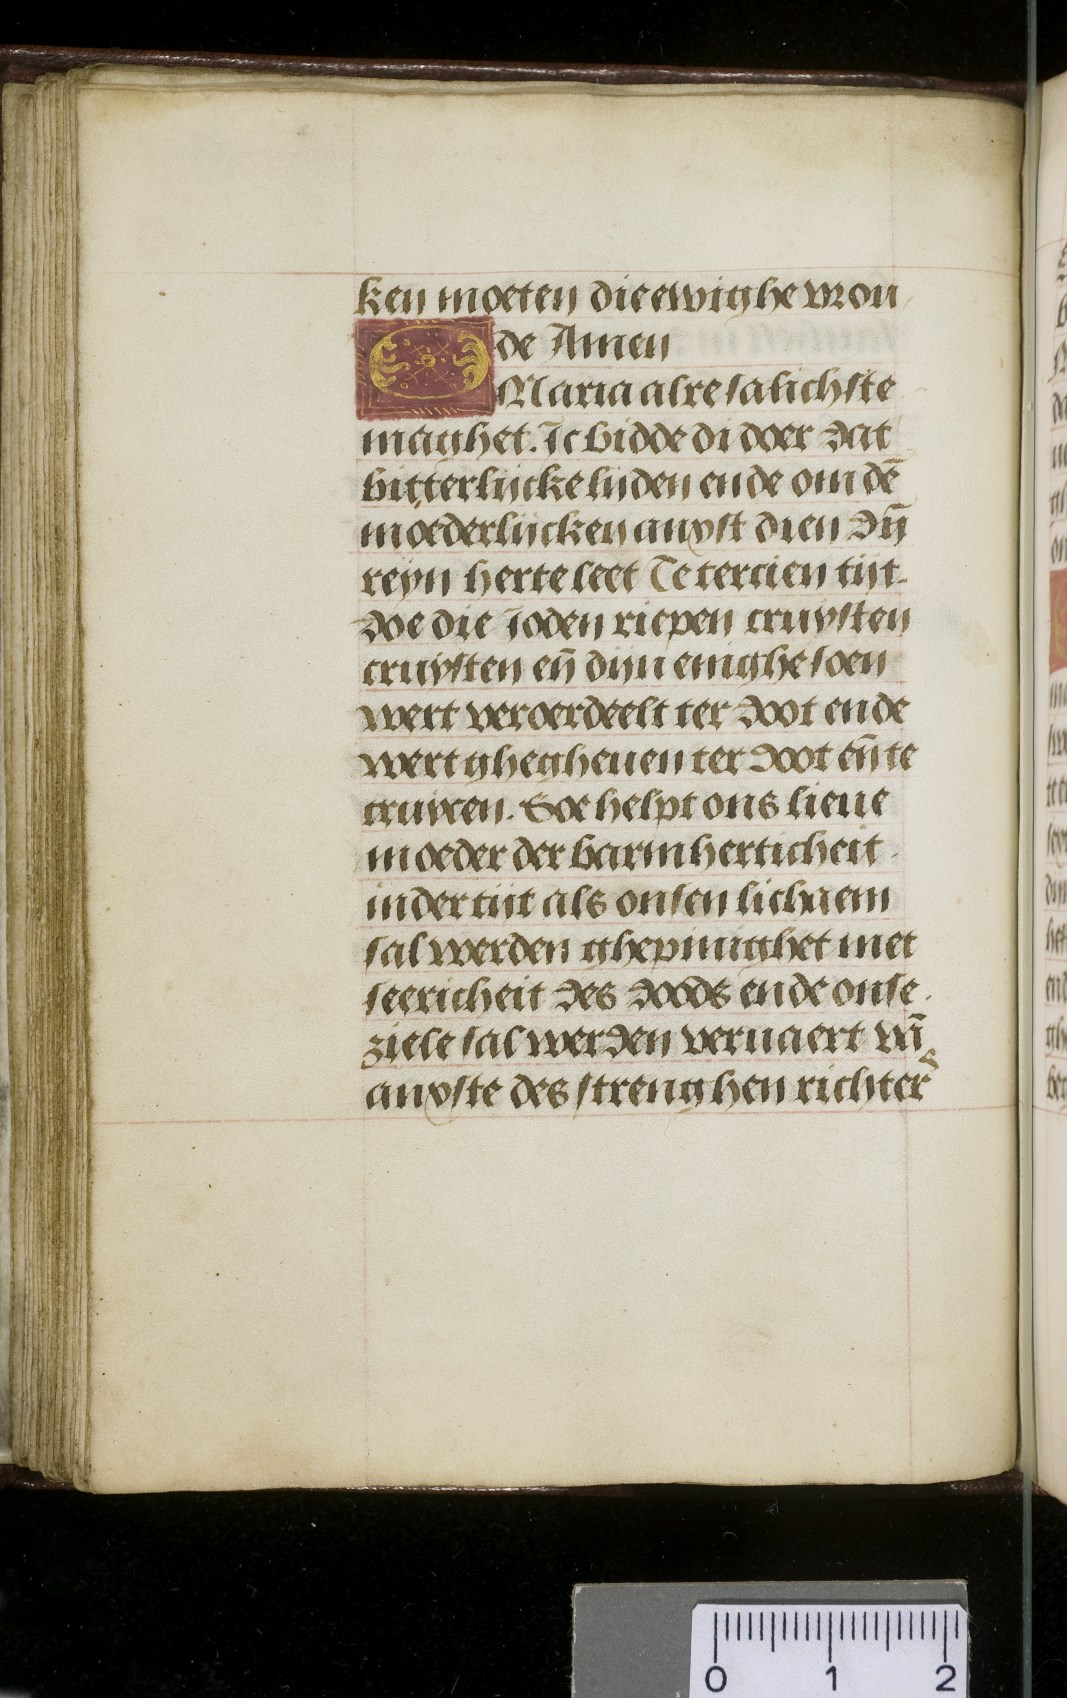 ken moeten die ewighe vrou
de Amen
O Maria alre salichste
maghet. Ic bidde di doer dat
bitterlijcke lijden ende om dē
moederlijcken anxst dien dijn̄
reyn herte leet Te tercien tijt
doe die Joden riepen cruysten
cruysten en̄ dijn enighe soen
wert veroerdeelt ter doot ende
wert ghegheuen ter doot en̄ te
cruycen. Soe helpt ons lieue
moeder der barmherticheit
inder tijt als onsen lichaem
sal werden ghepinighet met
seericheit des doods ende onse
ziele sal werden veruaert vā
anxste des strenghen richters
0 1 2